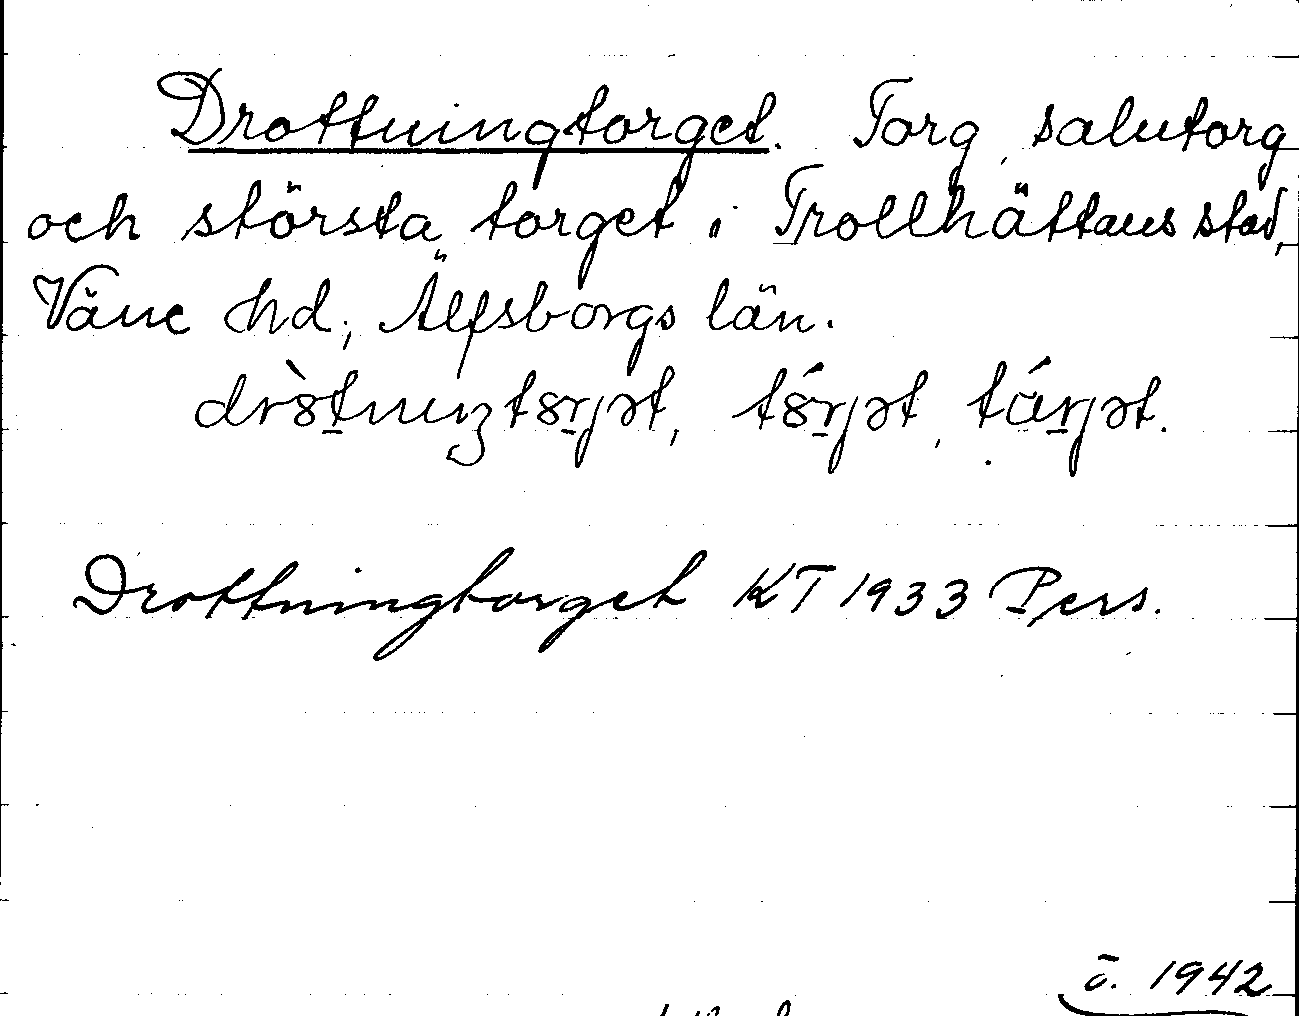 Drottningtorget. Torg, salutorg
och största torget i Trollhättans stad,
Väne hd, Älfsborgs län.
Drottningtorget KT 1933 Pers.
ö. 1942